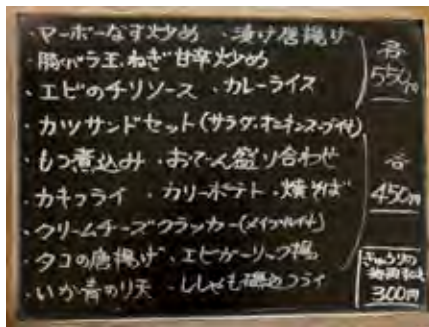 ・マーボーなす炒め ・漬け唐揚げ
・豚バラ玉ねぎ甘辛炒め
・エビのチリソース ・カレーライス
各
550円
・カツサンドセット(サラダ・オニオンスープ付)
・もつ煮込み ・おでん盛り合わせ
・カキフライ ・カリーポテト ・焼そば
・クリームチーズクラッカー(メイプル付)
・タコの唐揚げ ・エビガーリック揚
・いか青のり天 ・ししゃも磯辺フライ
各
450円
きゅうりの
300円